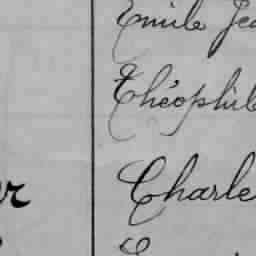 Emile Jea
Théophile
er Charle